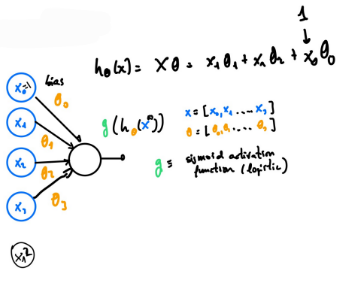 1
hθ(x) = Xθ = x₁θ₁ + x₁θ₂ + x₀θ₀
bias
x₀=1
θ₀
x₁
θ₁
x₂
θ₂
x₃
θ₃
g(hθ(x⁽ⁱ⁾))
x = [x₀, x₁ .... x₃]
θ = [θ₀ θ₁ .... θ₃]
g = sigmoid activation
function (logistic)
x₁²